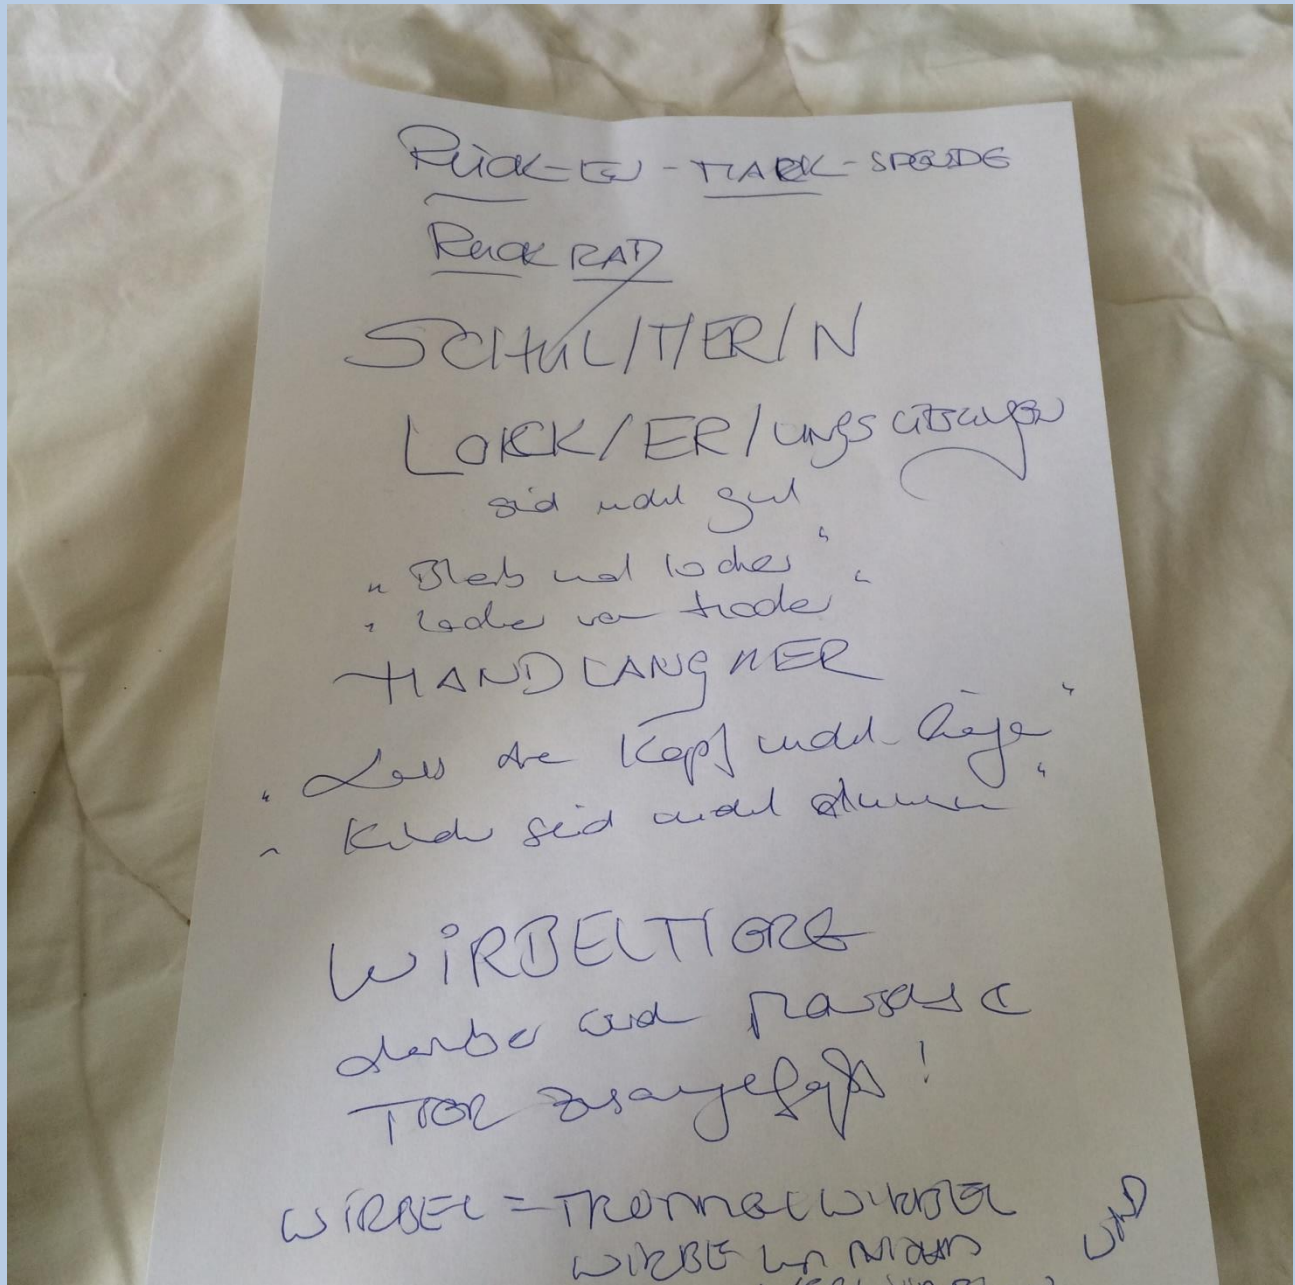 RÜCK-EN-MARK-SPENDE
RückRAD
SCHUL/T/ER/N
LOCK/ER/UNGSÜBUNGEN
sind nicht gut
"Bleib mal locker"
"Locker vom Hocker"
HANDLANGNER
"Lass den Kopf nicht hängen"
"Kinder seid nicht"
WIRBELTIERE
darüber wird Mensch &
TIER zusammengefaßt!
WIRBEL = TROMMELWIRBEL
WIRBEL UM
UND